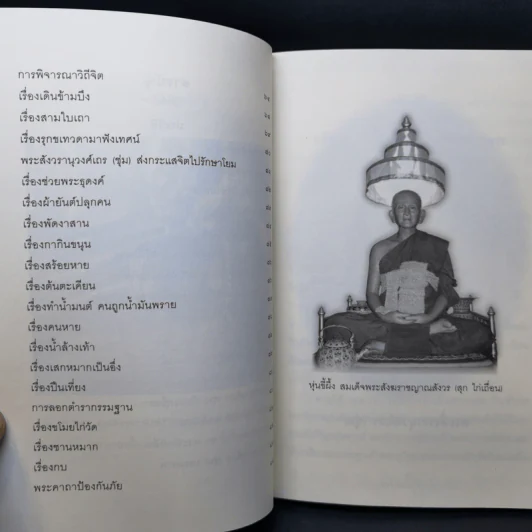 การพิจารณาวิถีจิต
เรื่องเดินข้ามบึง
เรื่องสามใบเถา
เรื่องรุกขเทวดามาฟังเทศน์
พระสังวรานุวงศ์เถร (ชุ่ม) ส่งกระแสจิตไปรักษาโยม
เรื่องช่วยพระธุดงค์
เรื่องผ้ายันต์ปลุกคน
เรื่องพัดงาสาน
เรื่องกากินขนุน
เรื่องสร้อยหาย
เรื่องต้นตะเคียน
เรื่องทำน้ำมนต์ คนถูกน้ำมันพราย
เรื่องคนหาย
เรื่องน้ำล้างเท้า
เรื่องเสกหมากเป็นอึ่ง
เรื่องปืนเที่ยง
การลอกตำรากรรมฐาน
เรื่องขโมยไก่วัด
เรื่องชานหมาก
เรื่องกบ
พระคาถาป้องกันภัย
หุ่นขี้ผึ้ง สมเด็จพระสังฆราชญาณสังวร (สุก ไก่เถื่อน)